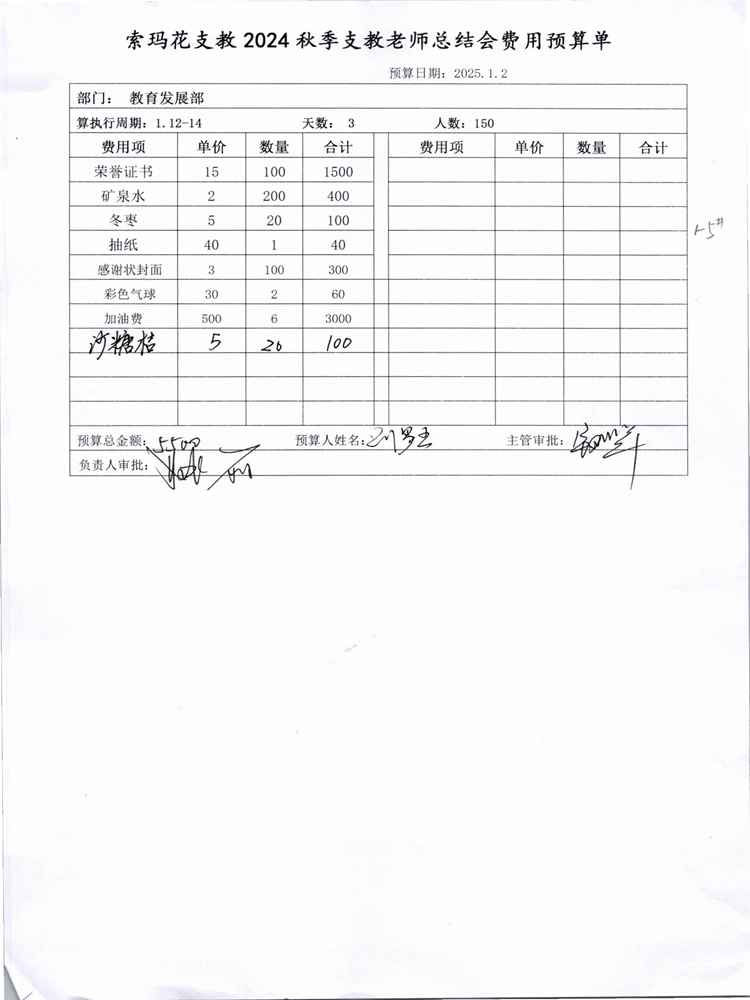 索玛花支教 2024 秋季支教老师总结会费用预算单
预算日期：2025.1.2
部门： 教育发展部
算执行周期：1.12-14 天数： 3 人数：150
费用项 单价 数量 合计 费用项 单价 数量 合计
荣誉证书 15 100 1500
矿泉水 2 200 400
冬枣 5 20 100
抽纸 40 1 40
感谢状封面 3 100 300
彩色气球 30 2 60
加油费 500 6 3000
沙糖桔 5 20 100
预算总金额：5500 预算人姓名： 主管审批：
负责人审批：